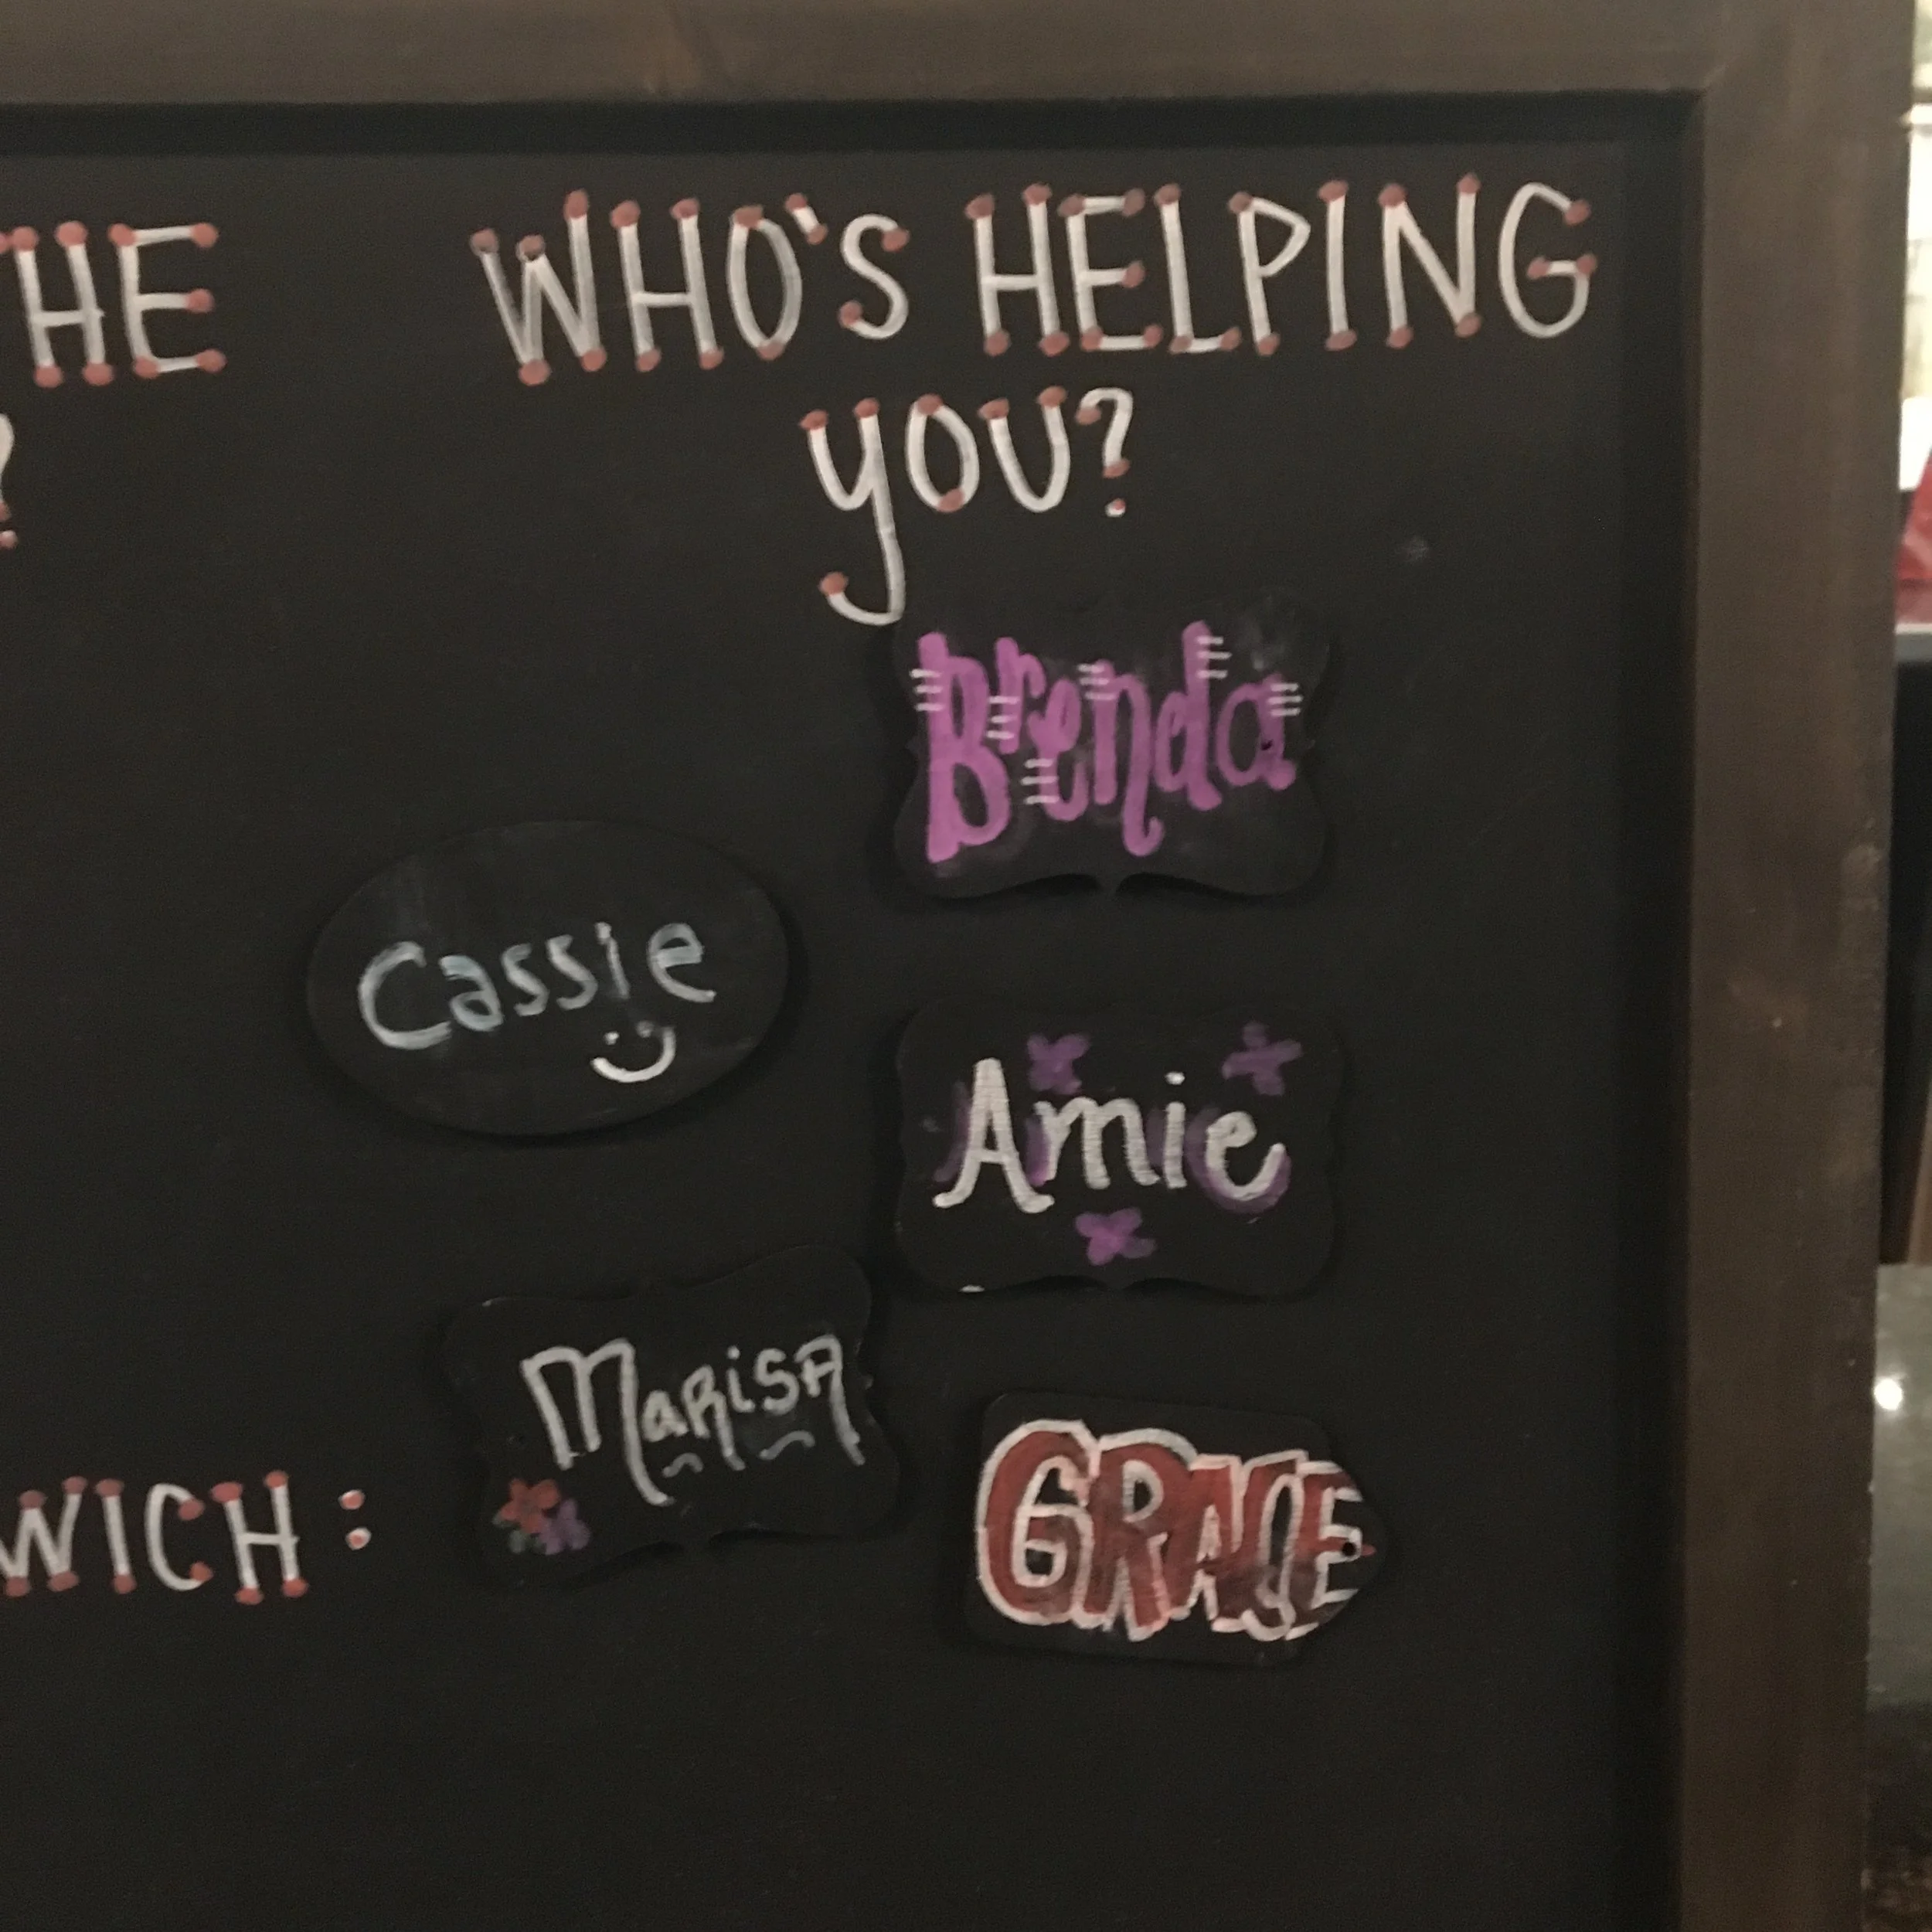 THE
?
WHO'S HELPING
YOU?
Brenda
Cassie
Amie
MaRisA
GRACE
WICH: